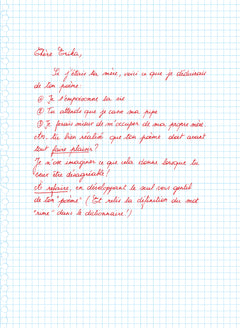 Chère Erika,
Si j'étais ta mère, voici ce que je déduirais
de ton poème :
① Je t'empoisonne la vie
② Tu attends que je casse ma pipe
③ Je ferais mieux de m'occuper de ma propre mère
As-tu bien réalisé que ton poème doit avant
tout faire plaisir ?
Je n'ose imaginer ce que cela donne lorsque tu
veux être désagréable !
A refaire, en développant le seul vers gentil
de ton "poème" (Et relis la définition du mot
"rime" dans le dictionnaire !)